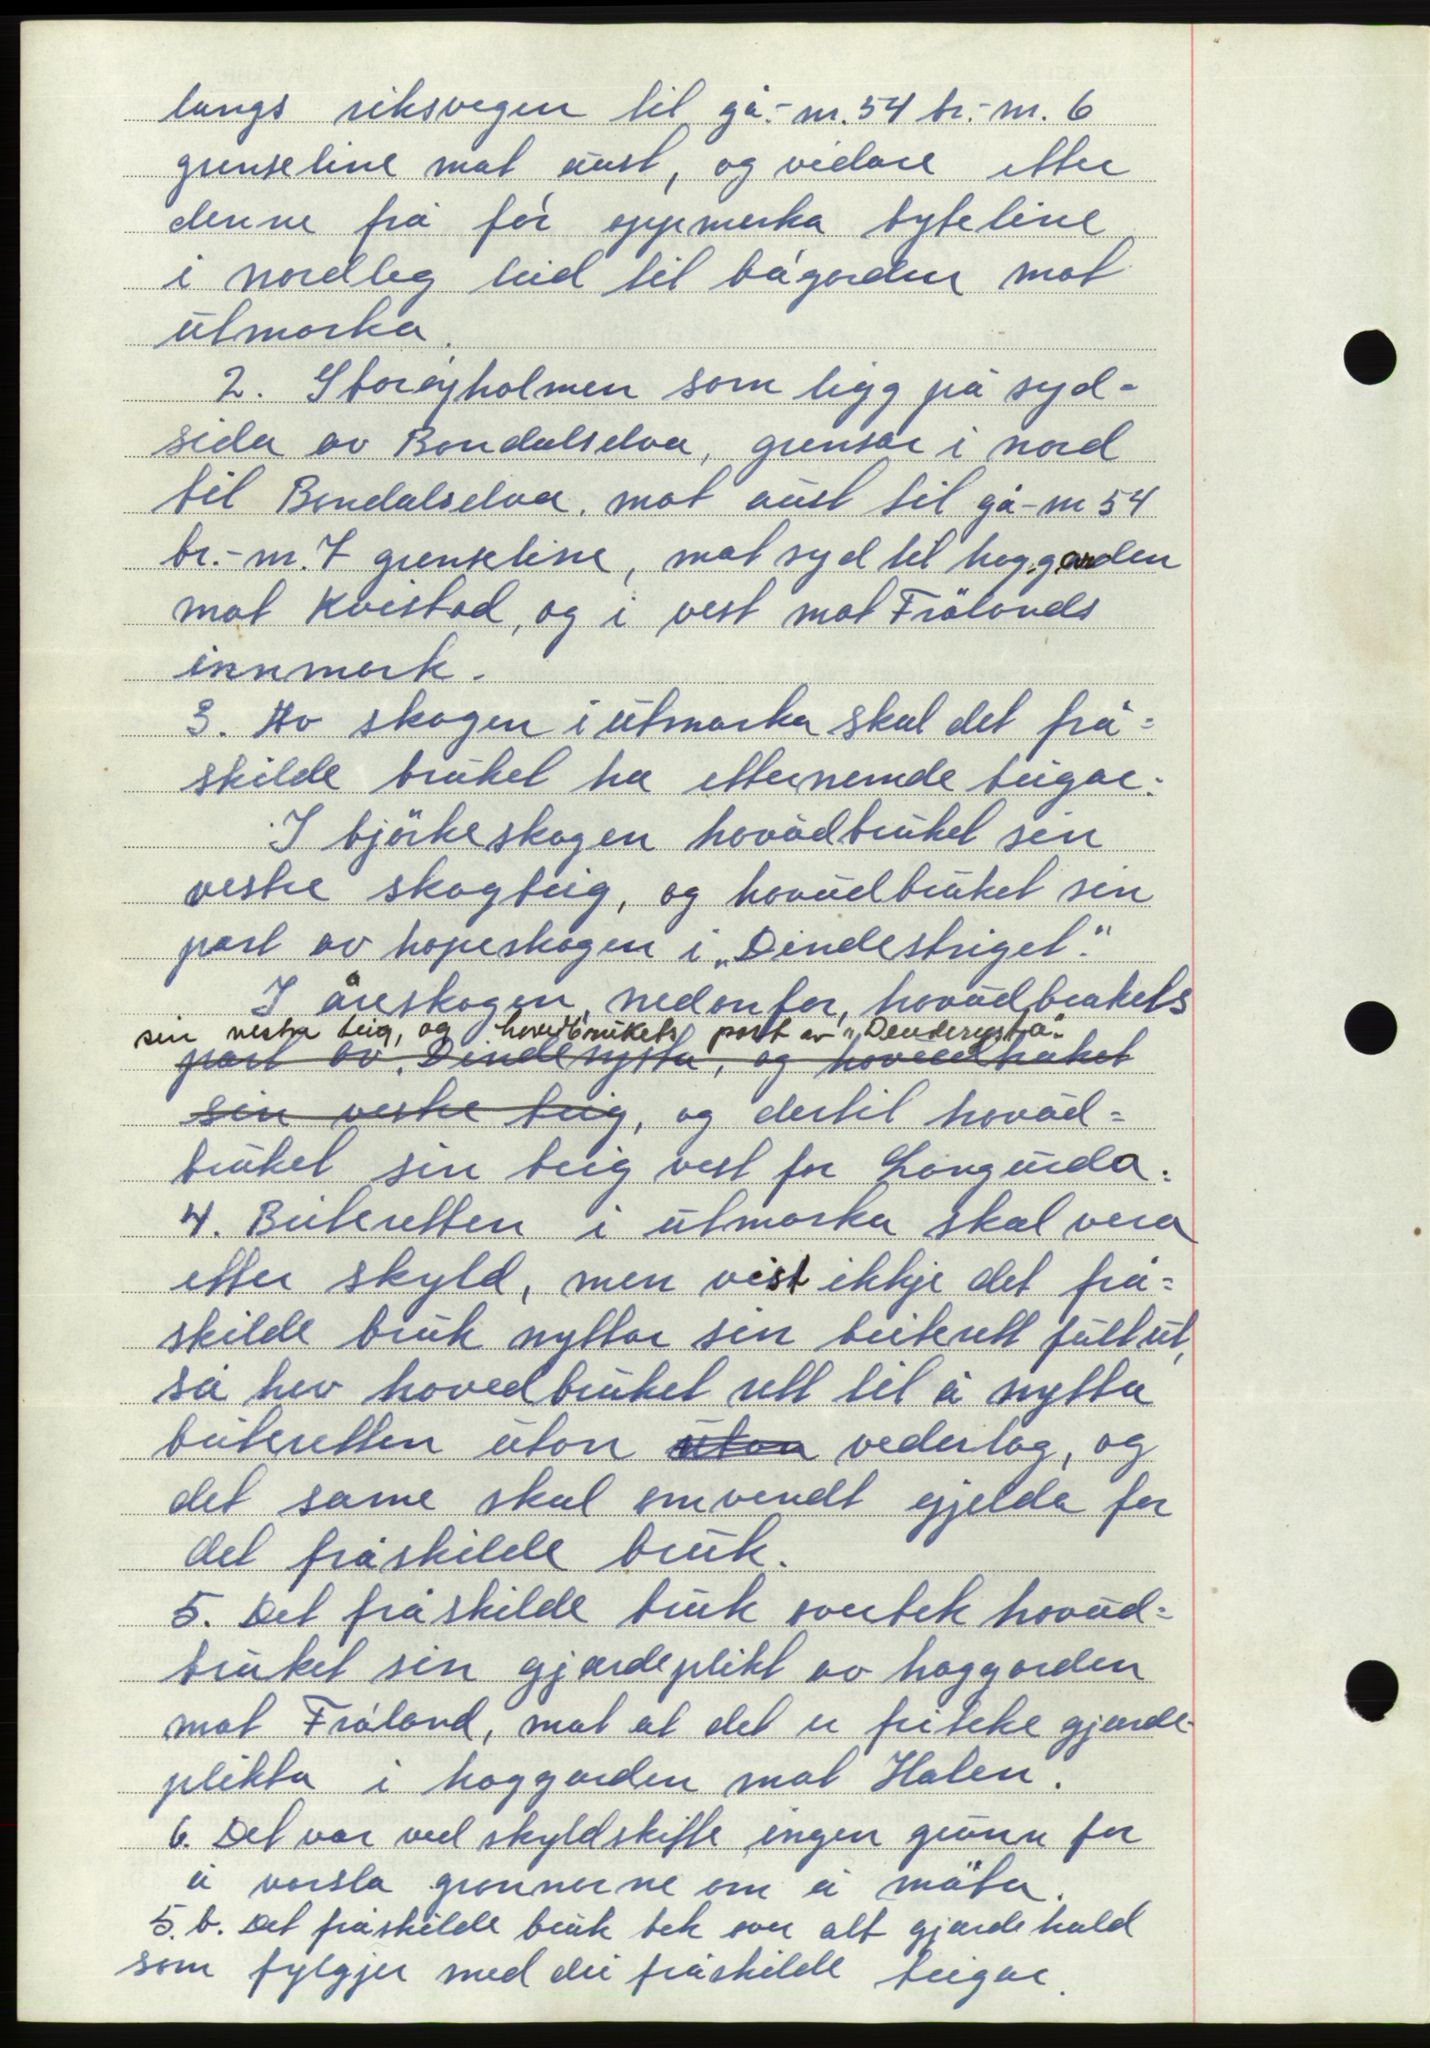 langs riksvegen til gå.-nr. 54 br.-nr. 6
grenseline mot aust, og vidare etter
denne frå før oppmerka byteline
i nordleg leid til bøgarden mot
utmarka.
2. Storøyholmen som ligg på syd-
sida av Bondalselva, grensar i nord
til Bondalselva. mot aust til gå-nr 54
br.-nr. 7 grenseline, mot syd til haggarden
mot Kvistad, og i vest mot Frölands
innmark.
3. Av skogen i utmarka skal det frå=
skilde bruket ha etternemde teigar:
I björkeskogen hovudbruket sin
vestre skogteig, og hovudbruket sin
part av hopeskogen i „Dindestriget."
I åreskogen, nedonfor, hovudbrukets
sin vestra teig, og hovedbrukets part av "Denderusta".
part av Dinderysta, og hovudbruket
sin vestre teig, og dertil hovud=
bruket sin teig vest for Langurda.
4. Beiteretten i utmarka skal vera
etter skyld, men vist ikkje det frå=
skilde bruk nyttar sin beiterett fullt ut,
så hev hovedbruket rett til å nytta
beiteretten utan utan vederlag, og
det same skal omvendt gjelda for
det fråskilde bruk.
5. Det fråskilde bruk overtek hovud=
bruket sin gjærdeplikt av haggarden
mot Fröland, mot at det er friteke gjærde-
plikta i haggarden mot Halen.
6. Det var ved skyldskifte ingen grunn for
å varsla grannerne om å møta.
5.b. Det fråskilde bruk tek over alt gjærdehald
som fylgjer med dei fråskilde teigar.